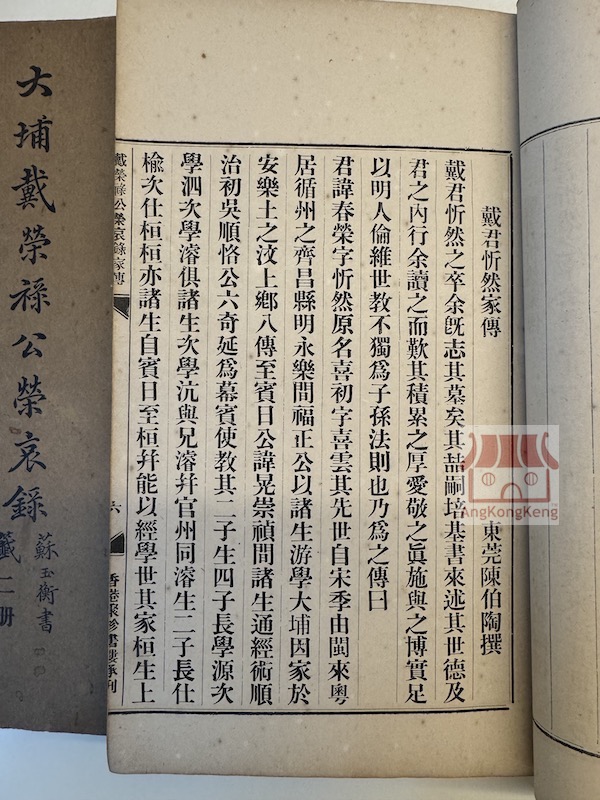 戴君忻然家傳
東莞陳伯陶撰
戴君忻然之卒余旣志其墓矣其喆嗣培基書來述其世德及
君之內行余讀之而歎其積累之厚愛敬之眞施與之博實足
以明人倫維世教不獨爲子孫法則也乃爲之傳曰
君諱春榮字忻然原名喜初字喜雲其先世自宋季由閩來粵
居循州之齊昌縣明永樂間福正公以諸生游學大埔因家於
安樂土之汶上鄉八傳至賓日公諱晃崇禎間諸生通經術順
治初吳順恪公六奇延爲幕賓使教其二子生四子長學源次
學泗次學濬俱諸生次學沆與兄濬幷官州同濬生二子長仕
楡次仕桓桓亦諸生自賓日至桓幷能以經學世其家桓生上
戴榮祿公榮哀錄家傳
六
香港聚珍書樓承刊
大埔戴榮祿公榮哀錄
蘇玉衡書
籤二册
AngKongKeng